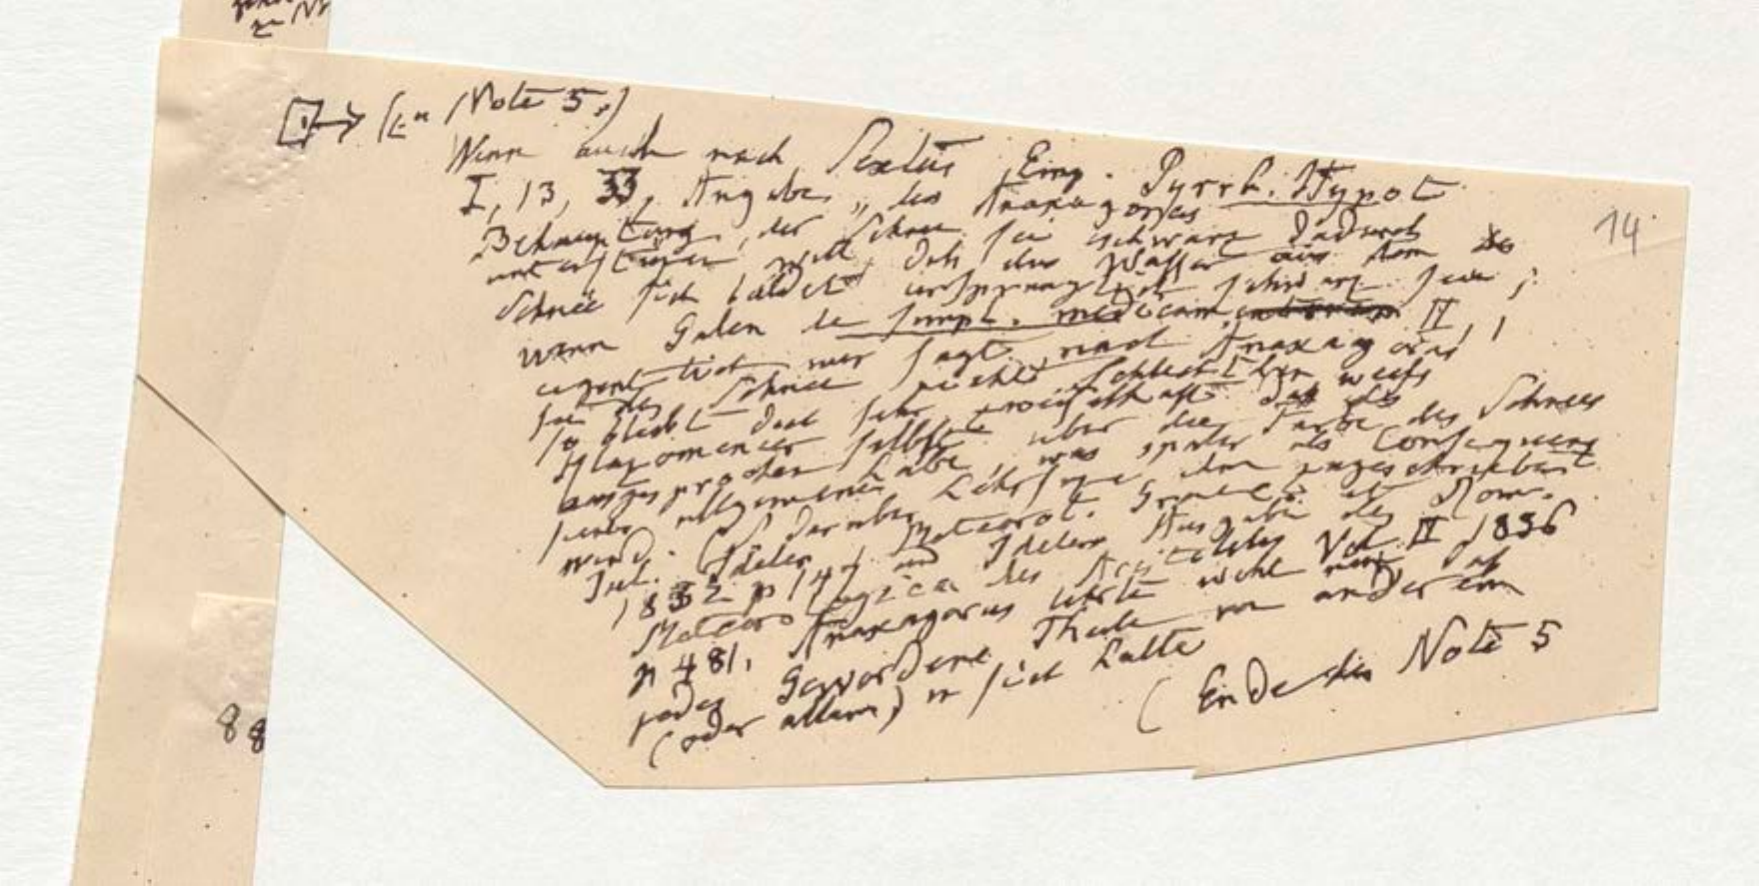 zu N
[.]→ (Zu Note 5.)
Wenn auch nach Sextus Emp. Pyrrh. Hypot
I, 13, 33, Angabe, „des Anaxagoras
Behauptung, der Schnee sei schwarz dadurch
unterstüzen will, daß das Wasser aus dem
Schnee sich bildet ursprünglich schwarz sein;
wenn Galen de simpl. medicam. II, 1
eigentlich nur sagt nach Anaxagoras
sei der Schnee nicht schlechthin weiß
so bleibt doch sehr zweifelhaft daß der
Klazomenier selbst über die Farbe des Schnees
ausgesprochen habe, was später als Consequenz
seiner allgemeinen Lehrsäze ihm zugeschrieben
wird. (S darüber Graec. et Rom.
Jul. Ideler Meteorol.
1832 p 147 und Idelers Ausgabe der
Meteorologica des Aristoteles Vol. II 1836
p 481. Anaxagoras lehrte wohl nur, daß
jedes Gewordene Theile von anderem
(oder allem) in sich hatte
(Ende der Note 5
14
88